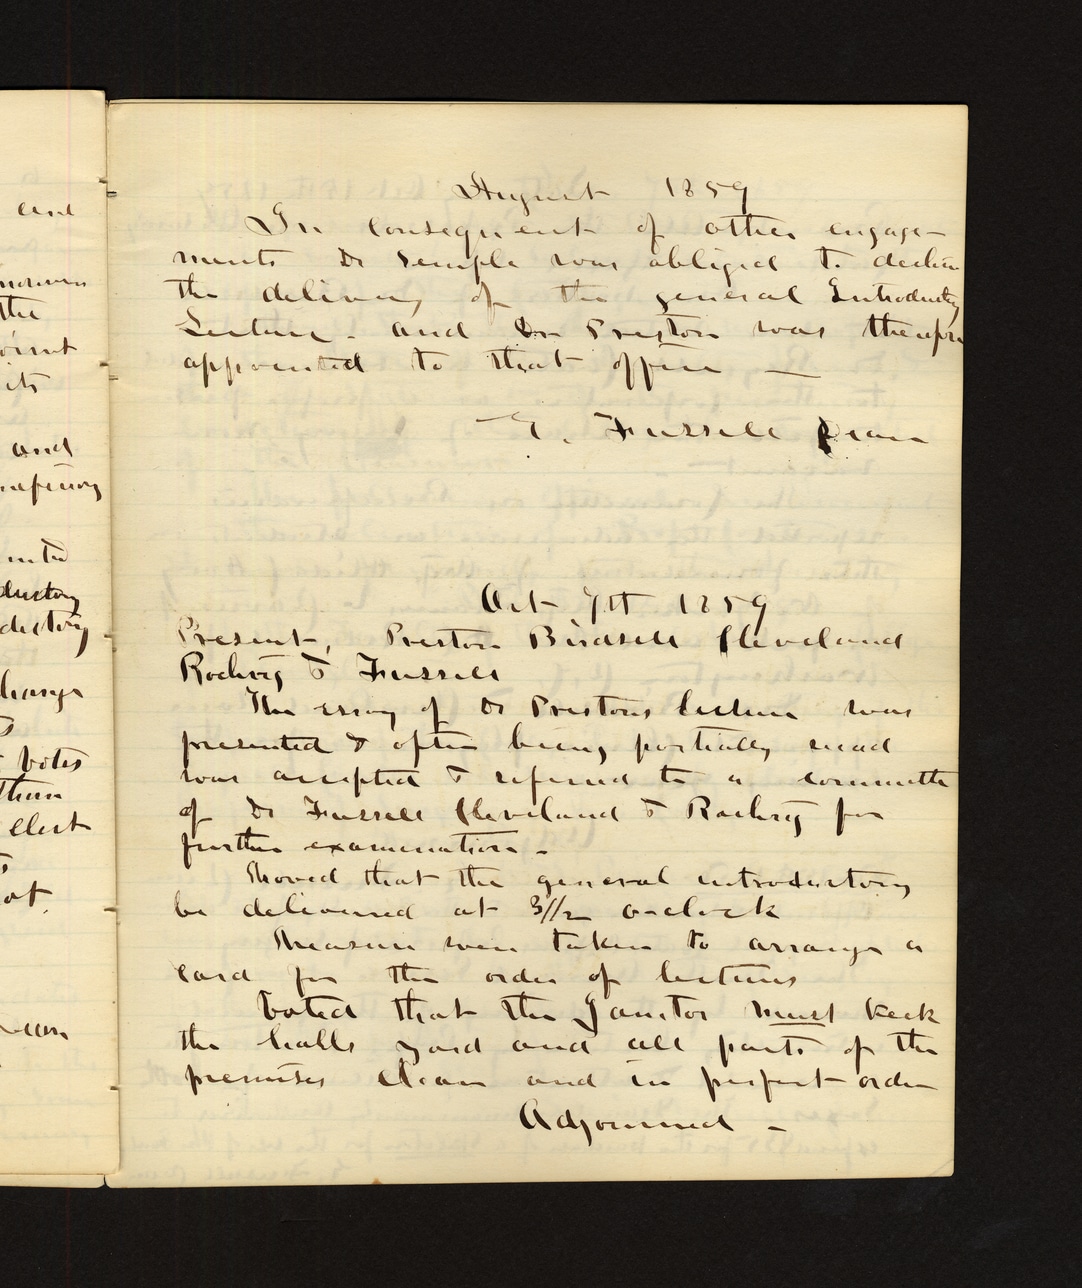 August 1859
In consequent of other engage-
ments Dr Semple was obliged to decline
the delivery of the general Introductory
Lecture. and Dr Preston was therefore
appointed to that office —
E. Fussell Dean
Oct 7th 1859
Present, Preston Birdsell Cleveland
Rochrig & Fussell
The essay of Dr Prestons lecture was
presented & after being partially read
was accepted & referred to a committee
of Dr Fussell Cleveland & Rochrig for
further examination -
Moved that the general introductory
be delivered at 3½ o-clock
Measure were taken to arrange a
card for the order of lectures
Voted that the Janitor must keek
the halls yard and all parts of the
premises clean and in perfect order
Adjourned -
and
the
its
and
ductory
ductory
votes
them
elect
of